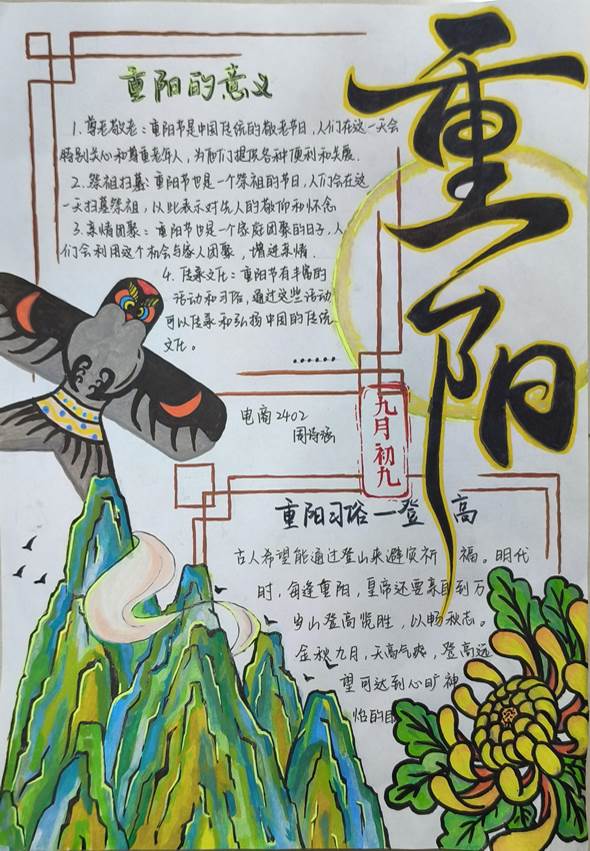 重阳
重阳的意义
1.尊老敬老：重阳节是中国传统的敬老节日,人们在这一天会
特别关心和尊重老年人，为他们提供各种便利和关爱.
2.祭祖扫墓：重阳节也是一个祭祖的节日,人们会在这
一天扫墓祭祖，以此表示对先人的敬仰和怀念
3.亲情团聚：重阳节也是一个家庭团聚的日子,人
们会利用这个机会与家人团聚，增进亲情.
4.传承文化：重阳节有丰富的
活动和习俗，通过这些活动
可以传承和弘扬中国的传统
文化。
......
电商2402
周诗涵
九月初九
重阳习俗一登高
古人希望能通过登山来避灾祈福。明代
时，每逢重阳，皇帝还要亲自到万
岁山登高览胜，以畅秋志。
金秋九月,天高气爽，登高远
望可达到心旷神
怡的目